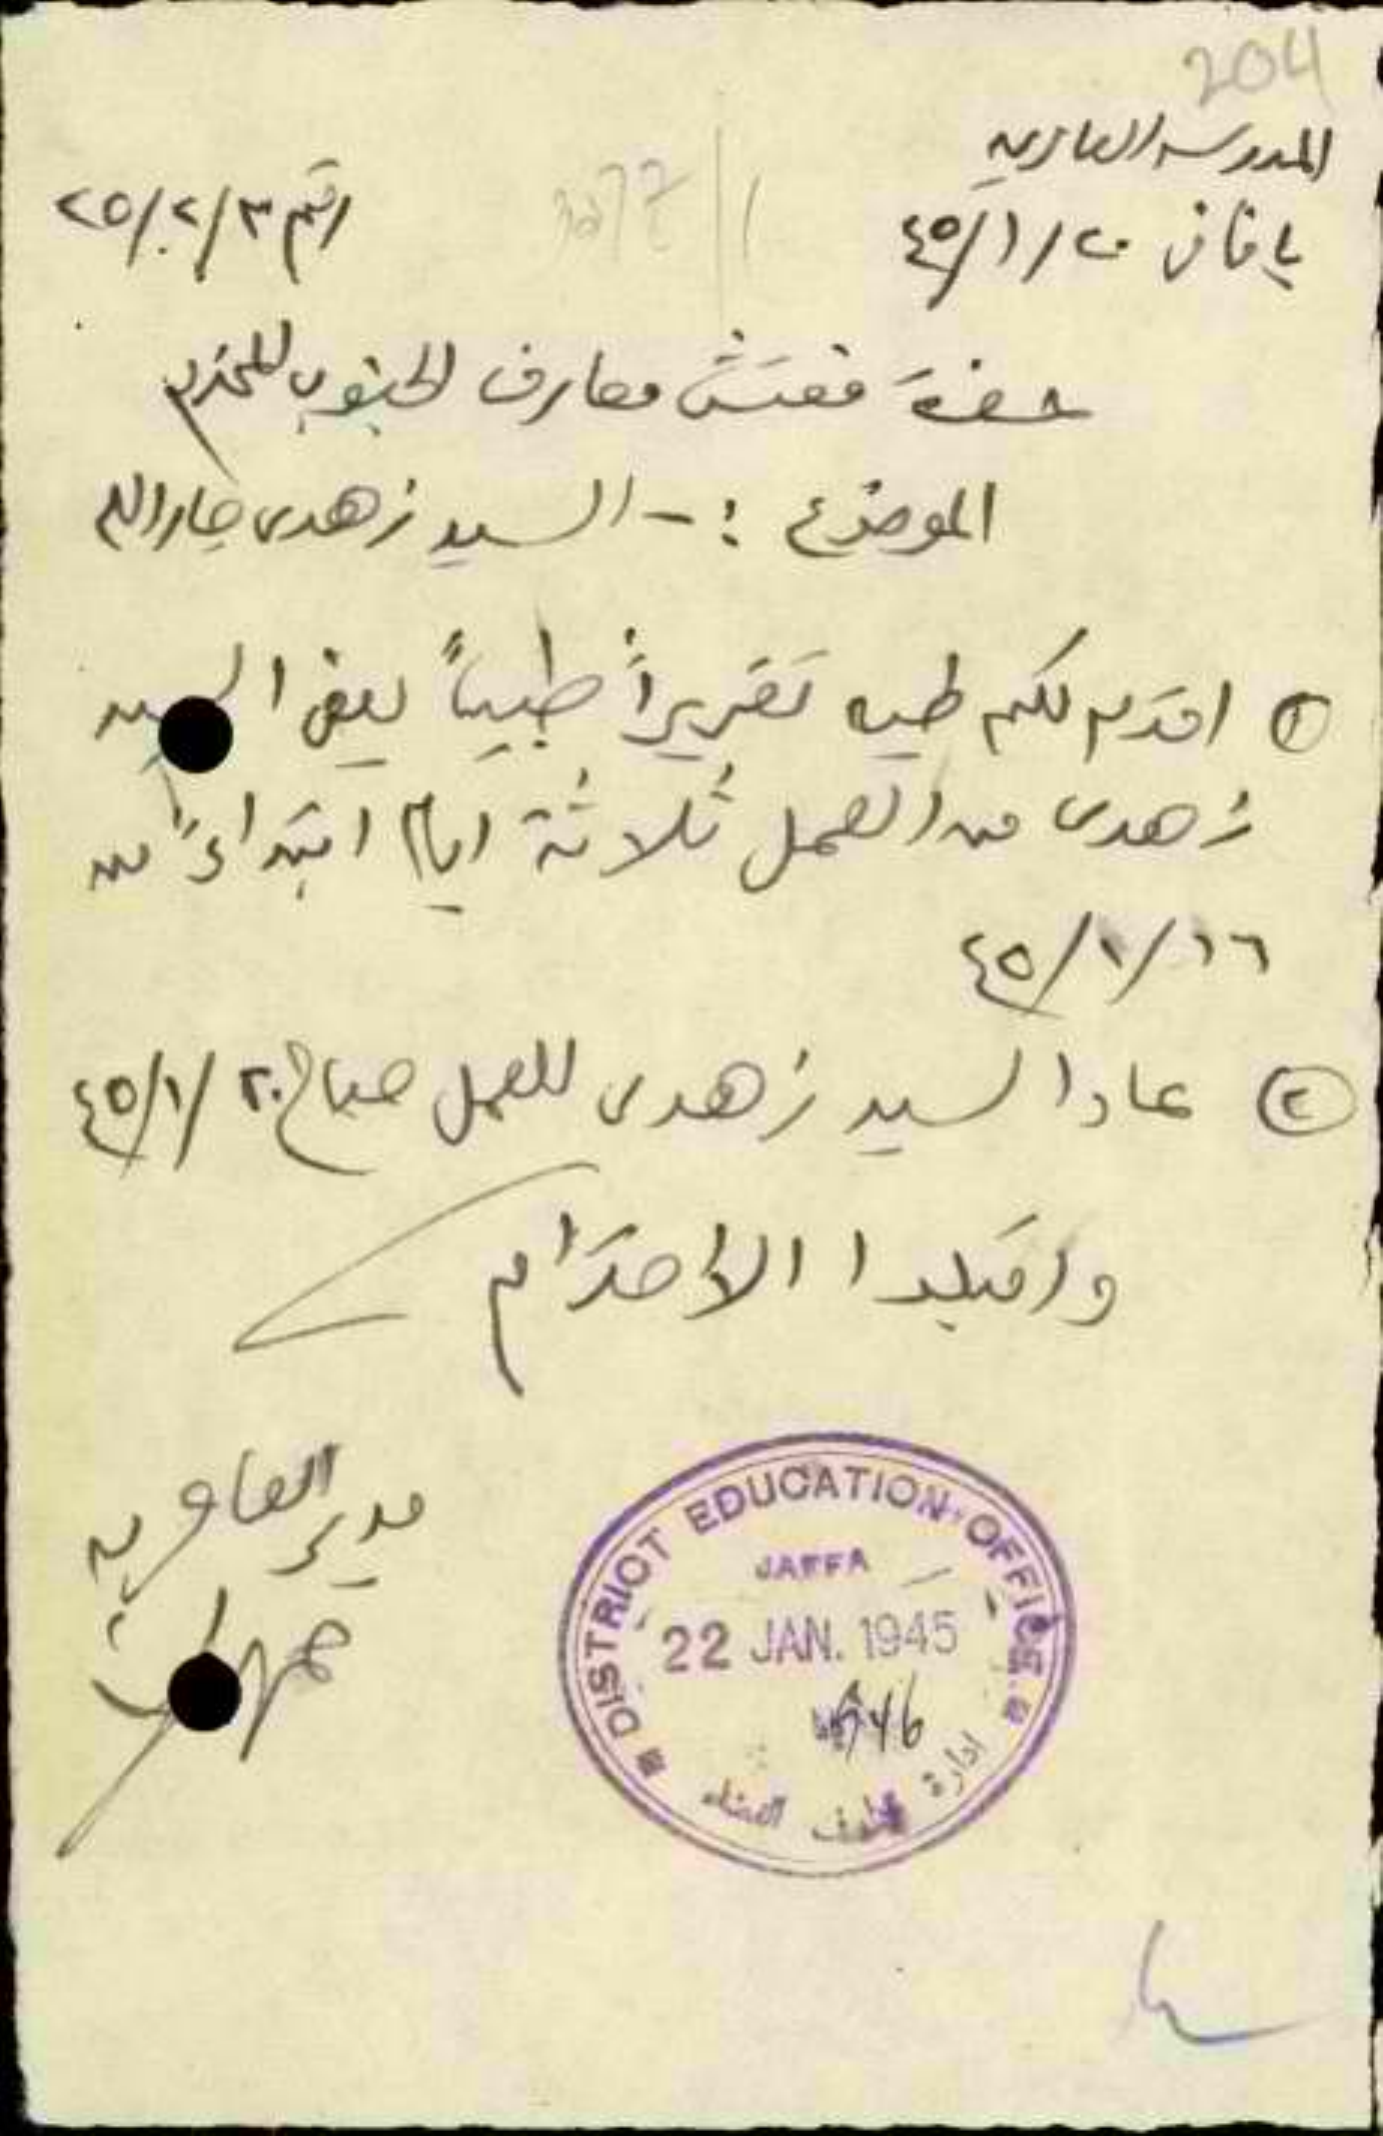 204
المدرسه العامريه
يافا في ٢٠/١/٤٥
رقم ٣/٢/٢٥
حضرة مفتش معارف الجنوب المحترم
الموضوع :- السيد زهدى جارالله
١ اقدم لكم طيه تقريراً طبياً يعفى السيد
زهدى من العمل ثلاثة ايام ابتداءً من
١٦/١/٤٥
٢ عاد السيد زهدى للعمل صباح ٢٠/١/٤٥
واقبلوا الاحترام
مدير العامريه
DISTRICT EDUCATION OFFICE
JAFFA
22 JAN. 1945
ادارة معارف القضاء